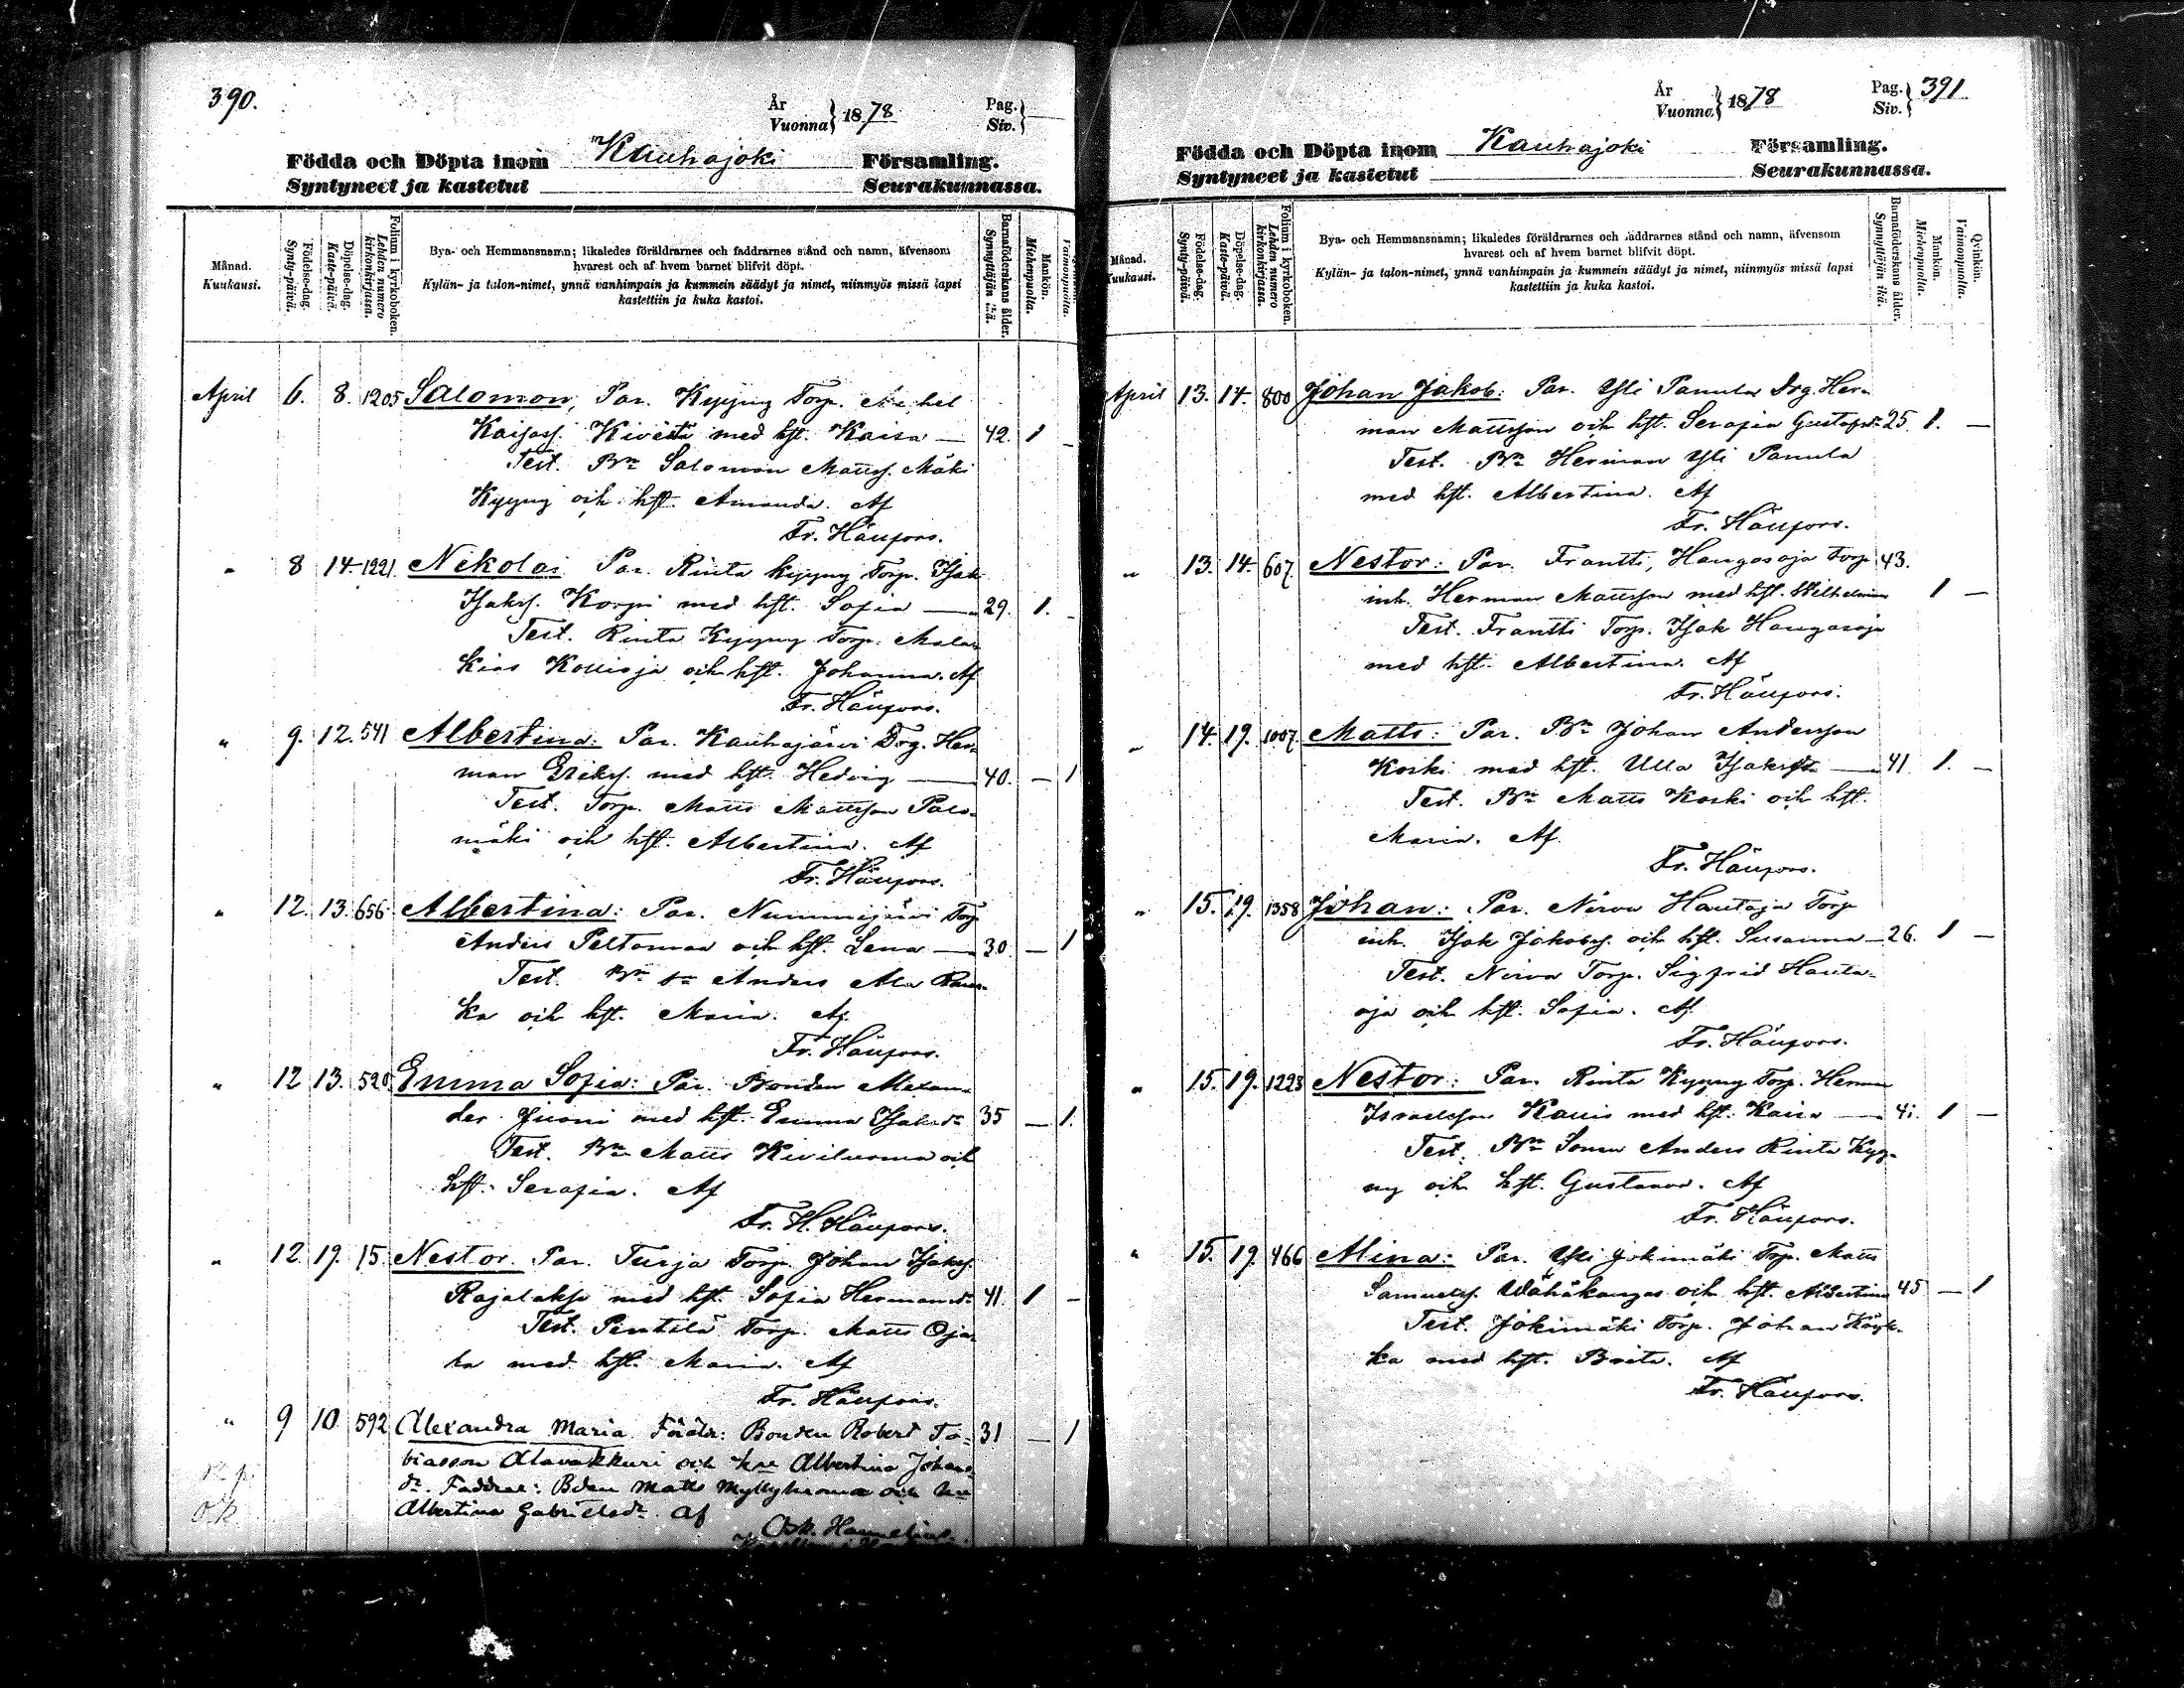 390.
År
Vuonna } 1878
Pag.
Siv. }
Födda och Döpta inom Kauhajoki Församling.
Syntyneet ja kastetut Seurakunnassa.
Månad.
Kuukausi.
Födelse-dag.
Synty-päivä.
Döpelse-dag.
Kaste-päivä.
Folium i kyrkoboken.
Lehden numero kirkonkirjassa.
Bya- och Hemmansnamn; likaledes föräldrarnes och faddrarnes stånd och namn, äfvensom
hvarest och af hvem barnet blifvit döpt.
Kylän- ja talon-nimet, ynnä vanhimpain ja kummein säädyt ja nimet, niinmyös missä lapsi
kastettiin ja kuka kastoi.
Barnaföderskans ålder.
Synnyttäjän ikä.
Mankön.
Miehenpuolta.
Vaimonpuolta.
April 6. 8. 1205 Salomon, Par. Kyyny Torp.
med hst. Kaisa — 42. 1 -
Test. Bn Salomon Matts. Mäki
Kyyny och hst. Amanda. Af
Fr. Häufors.
" 8 14. 1221. Nikolai Par. Rinta kyyny Torp. Isak
Isaks. Korpi med hst. Sofia — 29. 1. -
Test. Rinta Kyyny Torp. Mala-
kias och hst. Johanna. Af
Fr. Häufors.
" 9. 12. 541 Albertina: Par. Kauhajärvi Drg. Her-
man Eriks. med hst. Hedvig — 40. — 1
Test. Torp. Matts Mattsson Palo-
mäki och hst. Albertina. Af
Fr. Häufors.
" 12. 13. 656. Albertina: Par. Nummijärvi Torp
Anders Peltomaa och hst. Lena — 30. — 1
Test. Bn sn Anders Ala
ka och hst. Maria. Af.
Fr. Häufors.
" 12 13. 520. Emma Sofia: Par. Bonden Alexan-
der Juoni med hst. Emma Isaksdr 35 — 1.
Test. Bn Matts Kiviluoma och
hst. Serafia. Af
Fr. H. Häufors.
" 12. 19. 15. Nestor. Par. Turja Torp. Johan Isaks.
Rajalakso med hst. Sofia Hermansdr 41. 1 -
Test. Pentilä Torp. Matts Oja-
la med hst. Maria. Af
Fr. Häufors.
" 9 10 592 Alexandra Maria. Föräldr: Bonden Robert To- 31 — 1
biasson Alavakkuri och hu Albertina Johans-
dr. Faddrar: Bden Matts Myllyluoma och hu
Albertina Gabrielsdr. Af
Osk. Hannelius.
År
Vuonna } 1878
Pag.
Siv. } 391
Födda och Döpta inom Kauhajoki Församling.
Syntyneet ja kastetut Seurakunnassa.
Månad.
Kuukausi.
Födelse-dag.
Synty-päivä.
Döpelse-dag.
Kaste-päivä.
Folium i kyrkoboken.
Lehden numero kirkonkirjassa.
Bya- och Hemmansnamn; likaledes föräldrarnes och faddrarnes stånd och namn, äfvensom
hvarest och af hvem barnet blifvit döpt.
Kylän- ja talon-nimet, ynnä vanhimpain ja kummein säädyt ja nimet, niinmyös missä lapsi
kastettiin ja kuka kastoi.
Barnaföderskans ålder.
Synnyttäjän ikä.
Mankön.
Miehenpuolta.
Qvinkön.
Vaimonpuolta.
April 13. 14. 800 Johan Jakob: Par. Yli Panula Drg. Her-
man Mattsson och hst. Serafia Gustafsdr 25. 1. —
Test. Bn Herman Yli Panula
med hst. Albertina. Af
Fr. Häufors.
" 13. 14. 607. Nestor: Par. Frantti, Hangasoja Torp 43.
inh. Herman Mattsson med hst. Wilhelmina 1 —
Test. Frantti Torp. Isak Hangasoja
med hst. Albertina. Af
Fr. Häufors.
" 14. 19. 1007. Matts: Par. Bn Johan Andersson
Koski med hst. Ulla Isaksdr — 41 1. —
Test. Bn Matts Koski och hst.
Maria. Af.
Fr. Häufors.
" 15. 19. 1358 Johan: Par. Nirva Hautoja Torp
inh. Isak Jakobs. och hst. Susanna — 26. 1 —
Test. Nirva Torp. Sigfrid Hauta-
oja och hst. Sofia. Af.
Fr. Häufors.
" 15. 19. 1223 Nestor: Par. Rinta Kyyny Torp. Herman
Israelsson Kauis med hst. Kaisa — 41. 1 —
Test. Bn Sonen Anders Rinta Kyy-
ny och hst. Gustava. Af
Fr. Häufors.
" 15. 19. 466 Mina: Par. Yli Jokimäki Torp. Matts
Samuels. Wähäkangas och hst. Albertina 45 — 1
Test. Jokimäki Torp. Johan
ka med hst. Brita. Af
Fr. Häufors.